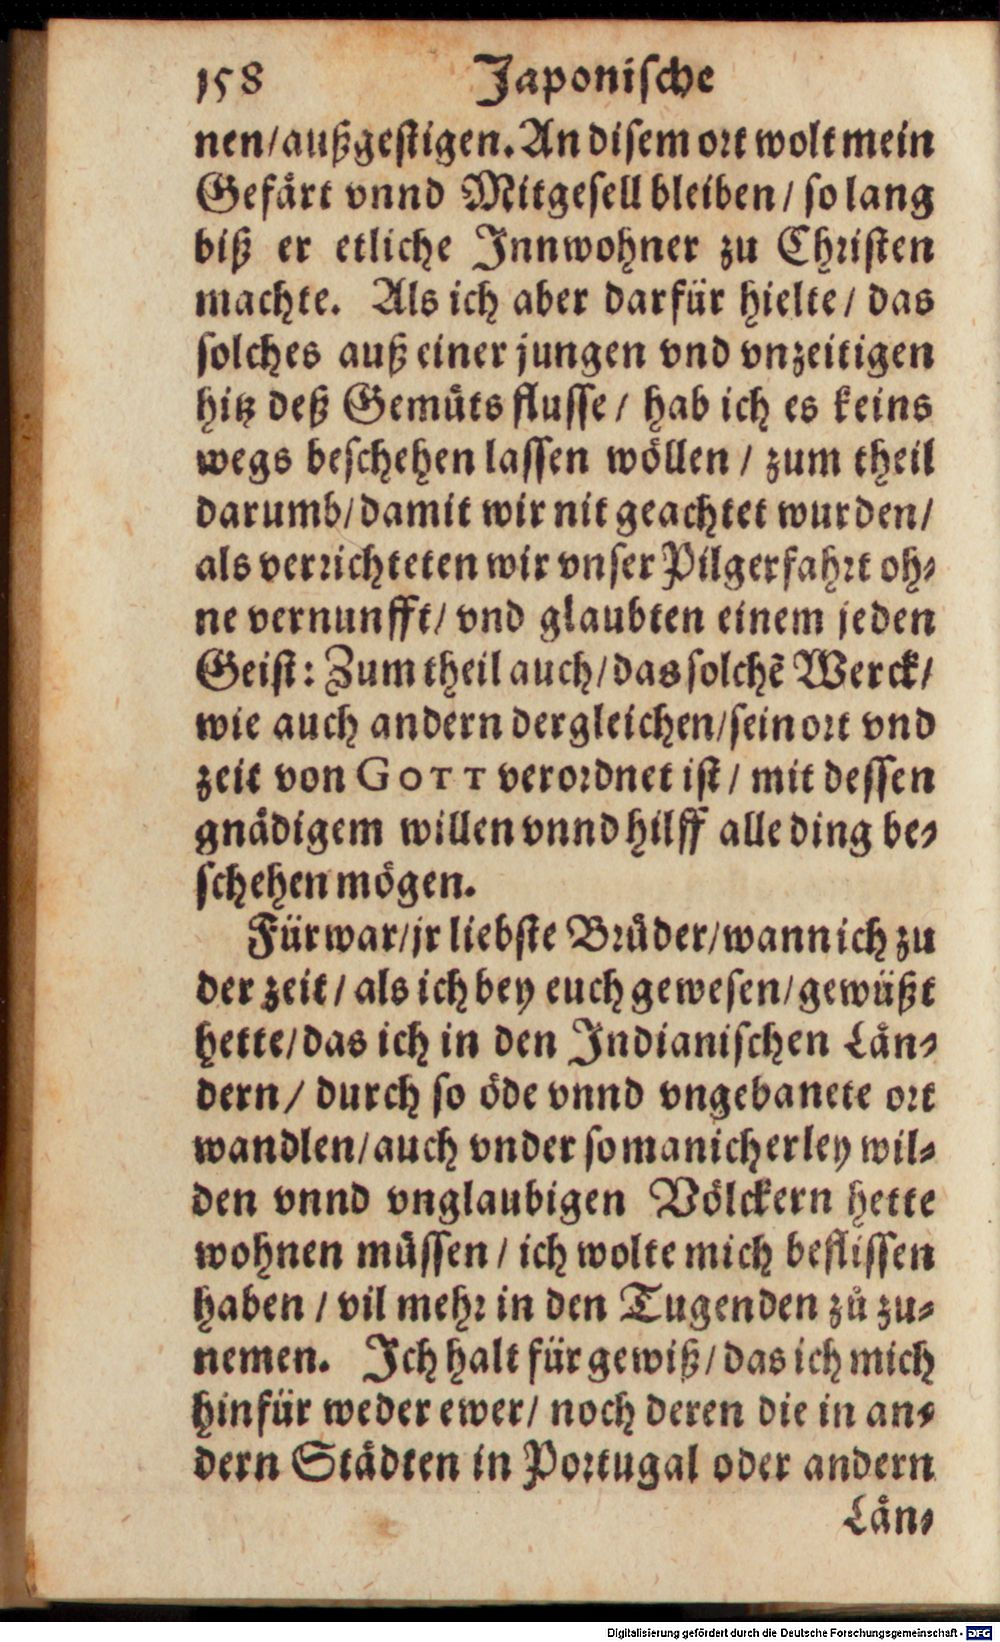 158 Japonische
nen/außgestigen. An disem ort wolt mein
Gefårt vnnd Mitgesell bleiben/ so lang
biß er etliche Innwohner zu Christen
machte. Als ich aber darfür hielte/ das
solches auß einer jungen vnd vnzeitigen
hitz deß Gemůts flusse/ hab ich es keins
wegs beschehen lassen wöllen/ zum theil
darumb/damit wir nit geachtet wurden/
als verrichteten wir vnser Pilgerfahrt oh-
ne vernunfft/ vnd glaubten einem jeden
Geist: Zum theil auch/das solchẽ Werck/
wie auch andern dergleichen/sein ort vnd
zeit von GOTT verordnet ist/ mit dessen
gnädigem willen vnnd hilff alle ding be-
schehen mögen.
Fürwar/jr liebste Brůder/wann ich zu
der zeit/ als ich bey euch gewesen/gewüßt
hette/das ich in den Indianischen Län-
dern/ durch so öde vnnd vngebanete ort
wandlen/auch vnder so manicherley wil-
den vnnd vnglaubigen Völckern hette
wohnen müssen/ ich wolte mich beflissen
haben/ vil mehr in den Tugenden zů zu-
nemen. Ich halt für gewiß/das ich mich
hinfür weder ewer/ noch deren die in an-
dern Städten in Portugal oder andern
Län-
Digitalisierung gefördert durch die Deutsche Forschungsgemeinschaft - DFG